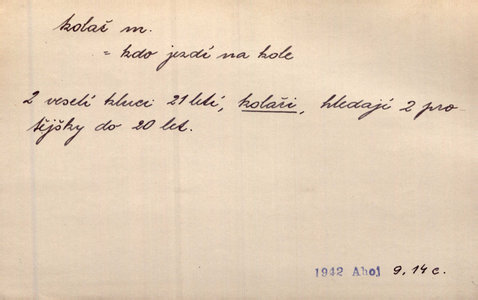 kolař m.
= kdo jezdí na kole
2 veselí kluci 21letí, kolaři, hledají 2 pro-
tějšky do 20 let.
1942 Ahoj 9, 14 c.